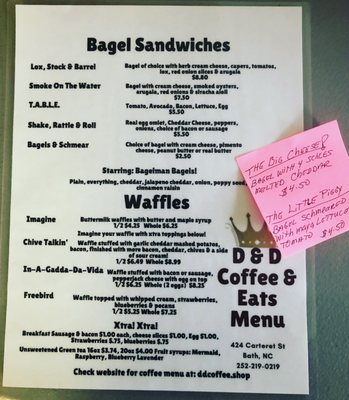 Bagel Sandwiches
Lox, Stock & Barrel
Bagel of choice with herb cream cheese, capers, tomatos,
lox, red onion slices & arugala
$8.80
Smoke On The Water
Bagel with cream cheese, smoked oysters,
arugala, red onions & siracha aioli
$7.50
T.A.B.L.E.
Tomato, Avocado, Bacon, Lettuce, Egg
$5.50
Shake, Rattle & Roll
Real egg omlet, Cheddar Cheese, peppers,
onions, choice of bacon or sausage
$5.50
Bagels & Schmear
Choice of bagel with cream cheese, pimento
cheese, peanut butter or real butter
$2.50
Starring: Bagelman Bagels!
Plain, everything, cheddar, jalapeno cheddar, onion, poppy
cinnamon raisin
THE BIG CHEESE!
BAGEL WITH 4 SLICES
MELTED CHEDDAR
$4.50
THE LITTLE PIGGY
BAGEL SCHMEARED
WITH MAYO, LETTUCE
TOMATO $4.50
Waffles
Imagine
Buttermilk waffles with butter and maple syrup
1/2 $4.25 Whole $6.25
Imagine your waffles with xtra toppings below!
Chive Talkin'
Waffle stuffed with garlic cheddar mashed potatos,
bacon, finished with more bacon, cheddar, chives & a side
of sour cream!
1/2 $6.49 Whole $8.99
In-A-Gadda-Da-Vida
Waffle stuffed with bacon or sausage,
pepperjack cheese with egg on top
1/2 $6.25 Whole (2 eggs) $8.25
Freebird
Waffle topped with whipped cream, strawberries,
blueberries & pecans
1/2 $5.25 Whole $7.25
Xtra! Xtra!
Breakfast Sausage & bacon $1.00 each, cheese slices $1.00, Egg $1.00,
Strawberries $.75, blueberries $.75
Unsweetened Green tea 16oz $3.74, 20oz $4.00 Fruit syrups: Mermaid,
Raspberry, Blueberry Lavender
Check website for coffee menu at: ddcoffee.shop
D & D
Coffee &
Eats
Menu
424 Carteret St
Bath, NC
252-219-0219